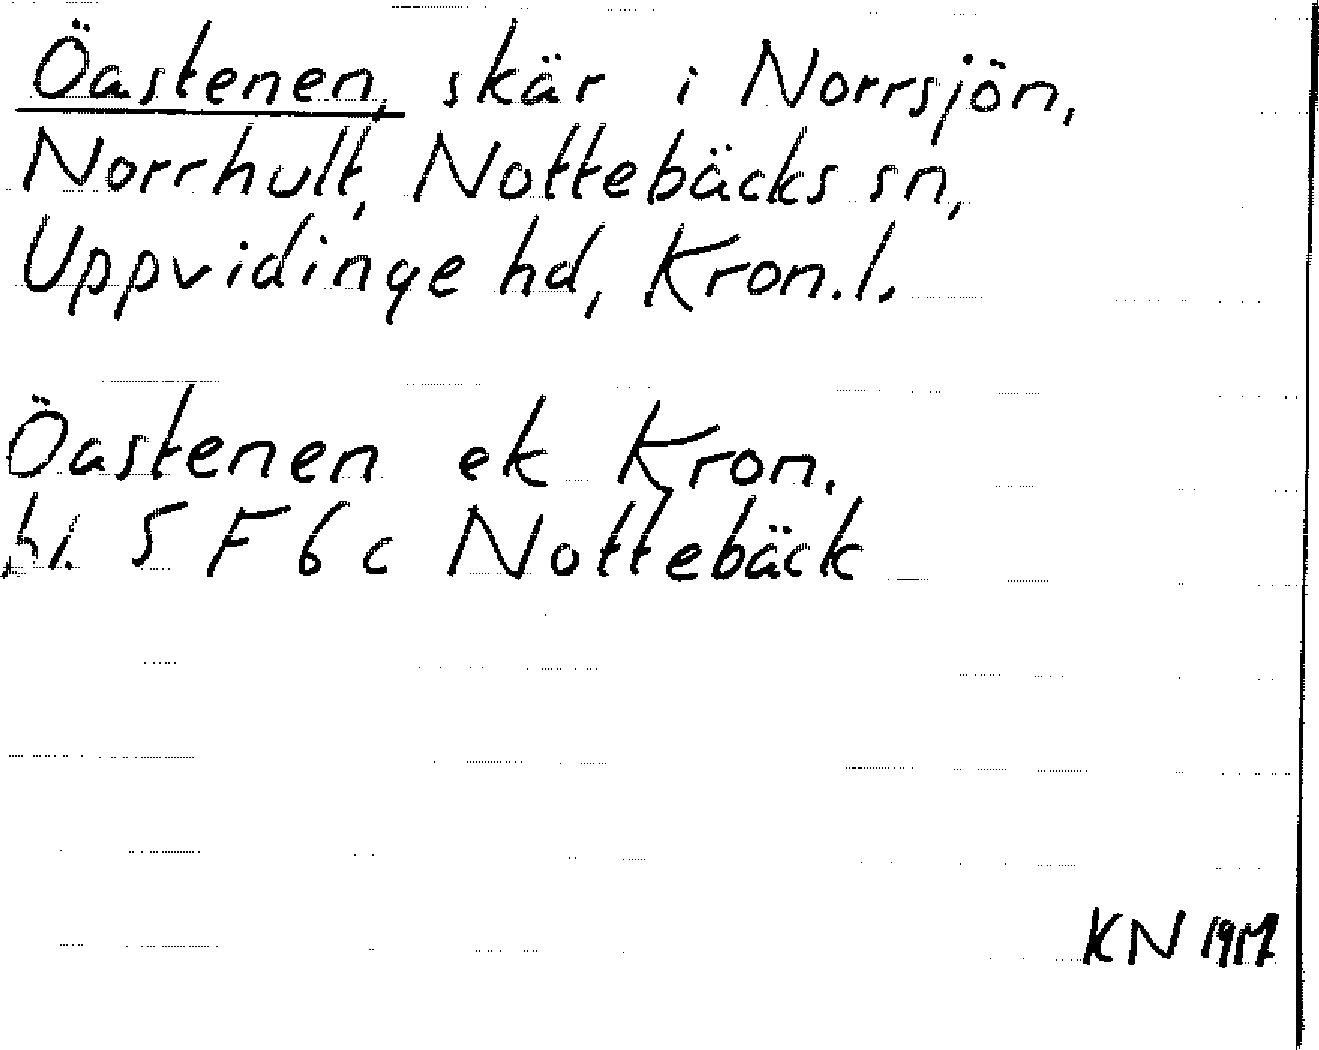 Öastenen, skär i Norrsjön,
Norrhult, Nottebäcks sn,
Uppvidinge hd, Kron.l.
Öastenen ek Kron.
bl. 5 F 6 c Nottebäck
KN